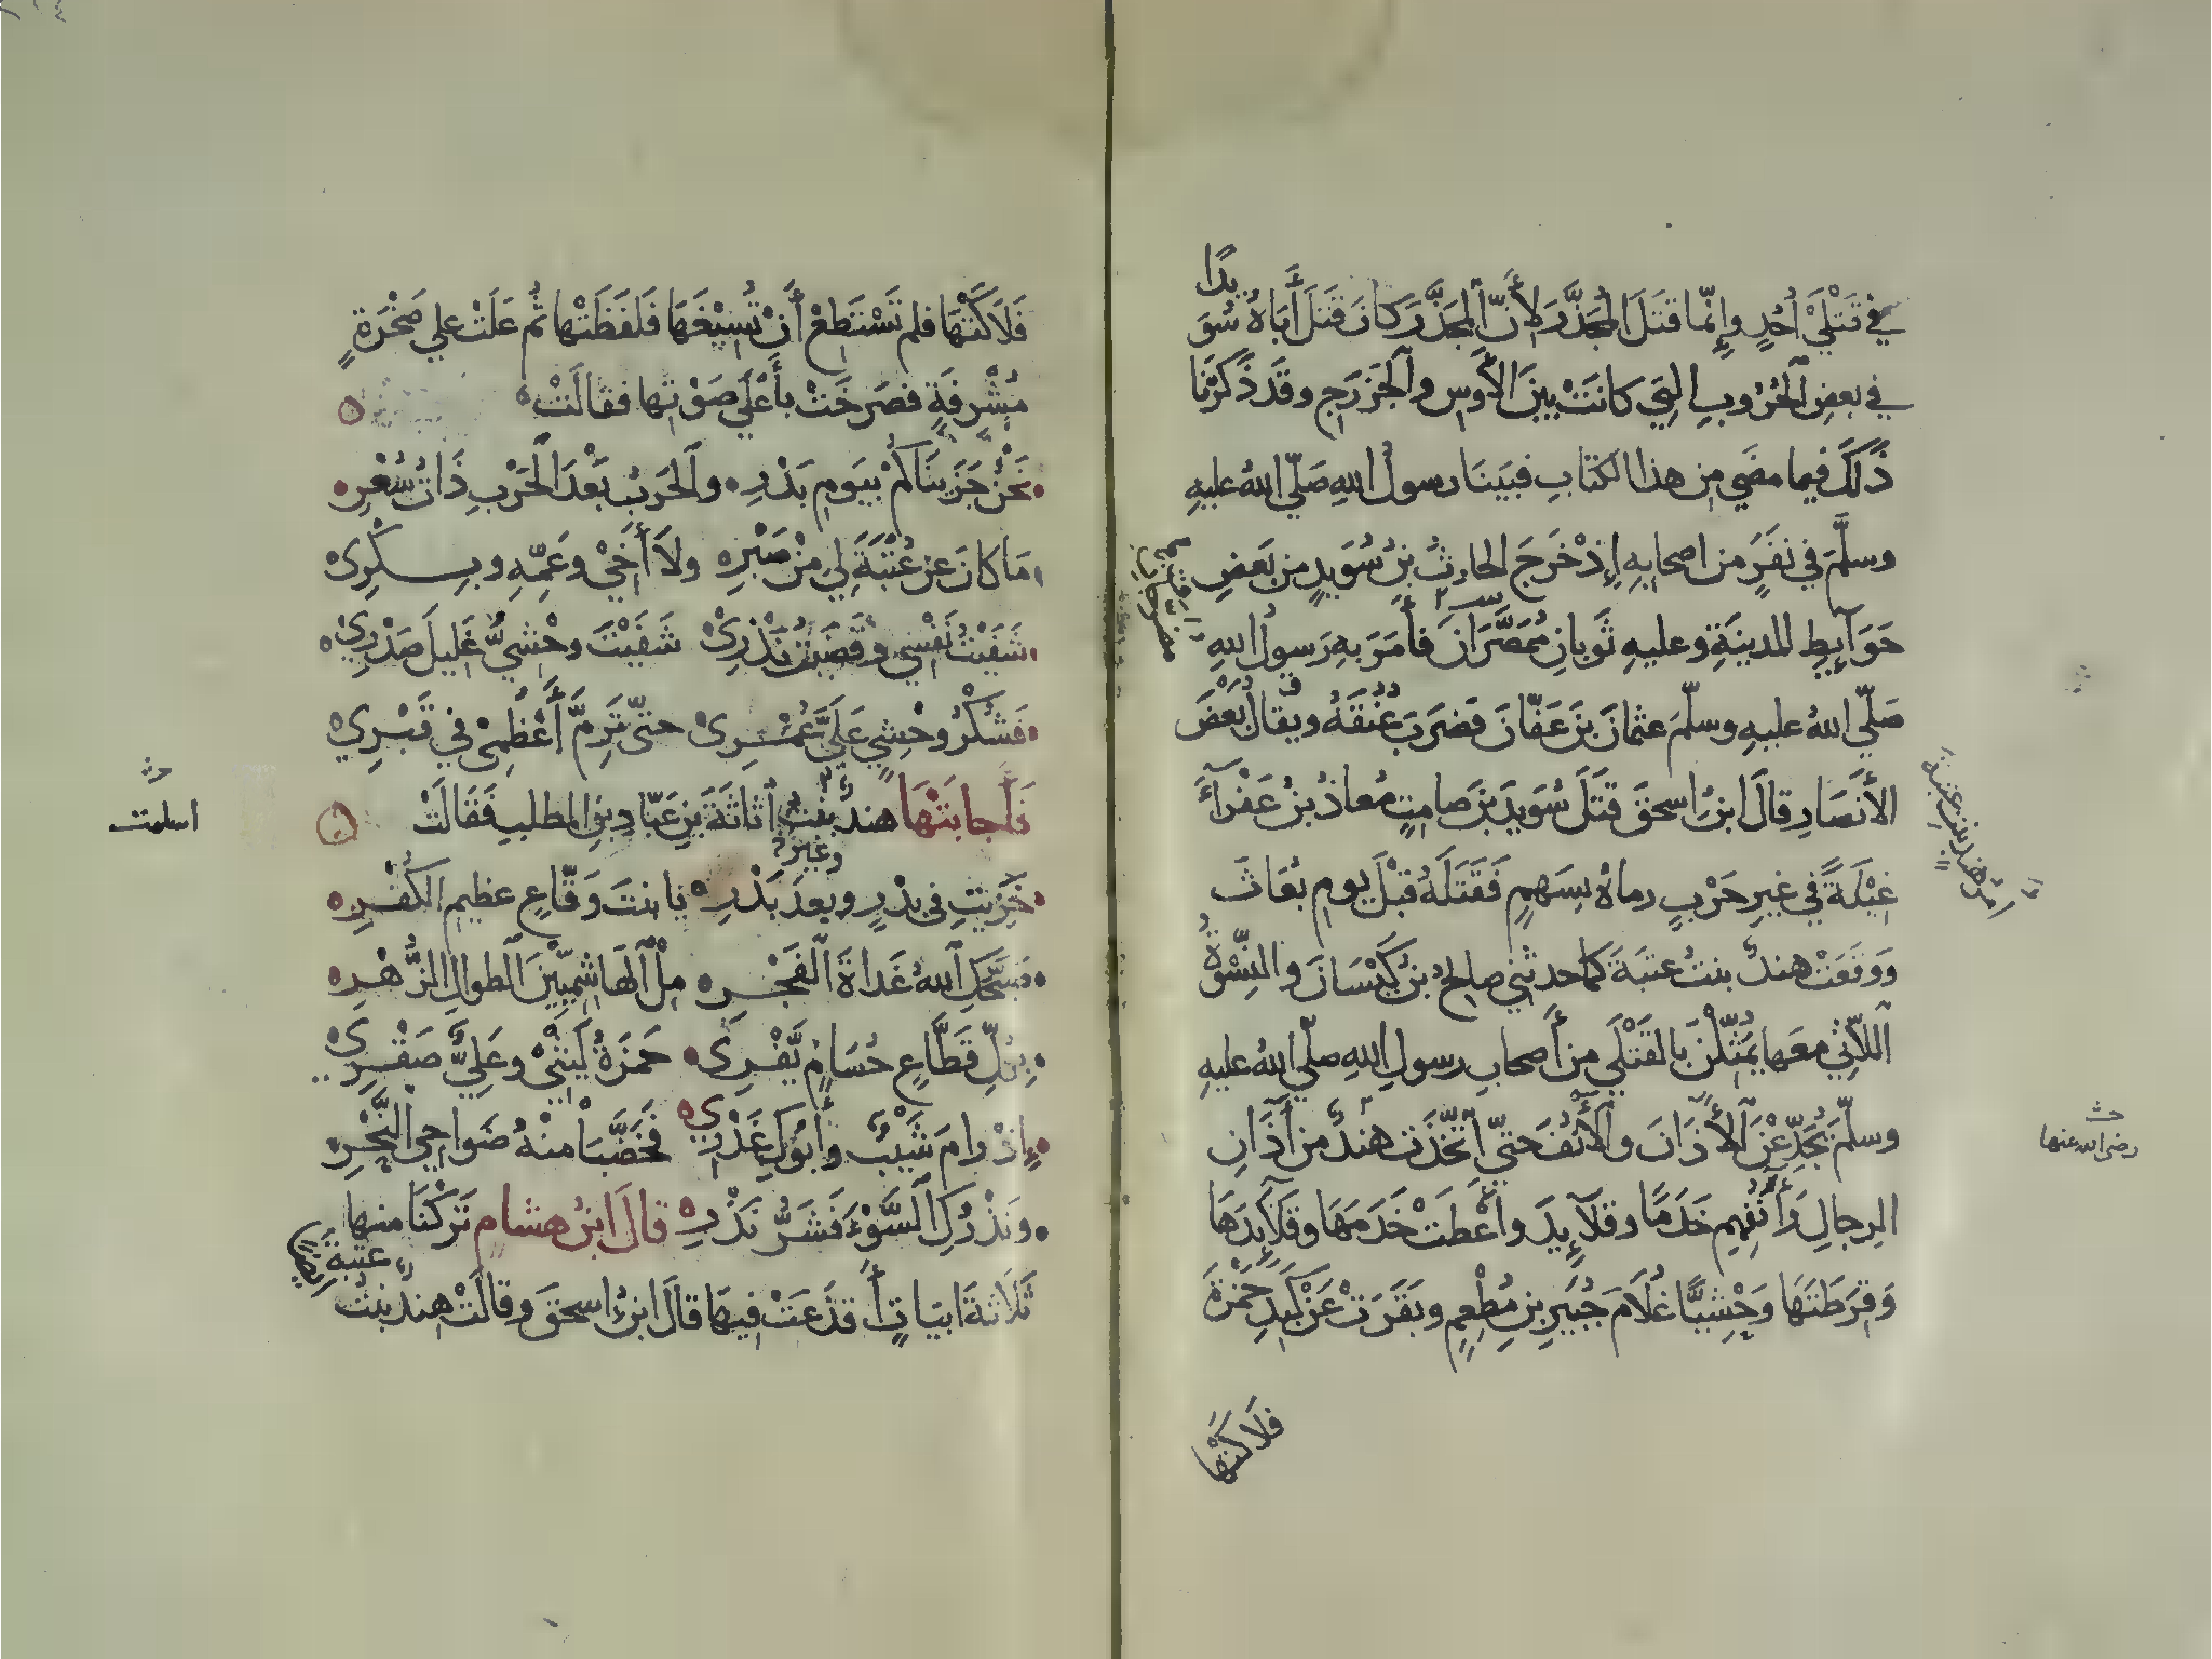 في قَتْلَيْ أُحُدٍ وإِنّما قتَلَ المُجَذَّرَ لأَنّ المُجَذَّرَ كانَ قتَلَ أَبَاهُ سُوَيدًا
في بعضِ الحُرُوبِ التي كانَتْ بينَ الأَوسِ والخَزرَجِ وقَد ذَكَرْنَا
ذَلكَ فيما مضَي مِن هذا الكتابِ فبَينَا رسولُ اللهِ صَلّي اللهُ عليهِ
وسلَّمَ في نفَرٍ من اصحابِهِ إِذْ خَرَجَ الحارثُ بنُ سُوَيدٍ من بَعضِ
حَوَآيِطِ المدينَةِ وعليهِ ثَوبانِ مُمَصَّرَانِ فأمَرَ بهِ رَسولُ اللهِ
صَلّي اللهُ عليهِ وسلّمَ عثمانَ بنَ عَفّانَ فضَرَبَ عُنُقَهُ ويقالُ بَعْضُ
الأَنصَارِ قالَ ابنُ اسحقَ قَتَلَ سُوَيدَ بنَ صامِتٍ مُعاذُ بنُ عَفْرَآءَ
غِيْلَةً في غيرِ حَرْبٍ رماهُ بسَهمٍ فَقَتَلَهُ قبْلَ يومِ بُعَاثَ
وَوقَعَتْ هندُ بنتُ عتبَةَ كما حدثني صالحُ بنُ كَيْسَانَ والنِّسْوَةُ
اللآتي معَها يُمَثِّلْنَ بالقَتْلَي مِن أَصحابِ رسولِ اللهِ صلّي اللهُ عليهِ
وسلّمَ يُجَدِّعْنَ الأذَانَ والأُنُفَ حتيّ اتّخَذَت هندُ من آذَانِ
الرجالِ وَأُنُفِهِم خَدَمًا وقلآيِدَ وأَعْطَتْ خَدَمَهَا وقَلآيِدَهَا
وَقِرَطَتَهَا وَحْشِيًّا غُلَامَ جُبَيرِ بنِ مُطْعِمٍ وبَقَرَتْ عَنْ كَبِدِ حَمْزَةَ
فَلَاكَتْهَا
رضي الله عنها
فَلَاكَتْهَا فلم تَسْتَطِعْ أَنْ تُسِيْغَهَا فَلَفَظَتْها ثُم عَلَتْ علي صَخْرَةٍ
مُشْرِفَةٍ فصَرخَتْ بأَعْلَي صَوْتها فقالَتْ
نَحْنُ جَزَينَاكُمْ بيَومِ بَدْرِ والحَربُ بَعْدَ الحَرْبِ ذَاتُ سُعْرِ
مَا كانَ عن عُتْبَةَ لي مِنْ صَبْرِ ولاَ أَخِيْ وعَمِّهِ وبِكْرِي
شَفَيْتُ نَفْسِي وقَضَيْتُ نَذْرِيْ شَفَيْتَ وحْشيُّ غَلِيلَ صَدْرِيْ
فَشُكْرُ وحْشِيٍ عَلَيَّ عُمْرِي حتيّ تَرِمَّ أَعْظُمِيْ في قَبْرِيْ
فَأَجابَتْهَا هندُ بنتُ أثاثَةَ بنِ عَبّادِ بنِ المطلبِ فَقَالَتْ
اسلمت
خَزِيتِ في بدْرٍ وبعدَ بَدْرِ يا بنتَ وَقّاعٍ عظيمِ الكُفْرِ
وغيرِ
صَبَّحَكِ اللهُ غَداةَ الفَجْرِ مِلْ الهَاشِمِيِّيْنَ الطوالِ الزُّهْرِ
بِكُلِّ قَطَّاعٍ حُسَامٍ يَفْرِي حَمزَةُ لَيْثيْ وعَلِيٌّ صَقْرِي
إِذْ رامَ شَيْبٌ وأَبُوكِ غَدْرِي فَخَضَّبَا منْهُ ضَواحِي النَّحْرِ
ونَذْرُكِ السَّوْءَ فَشَرُّ نَذْرِ قالَ ابنُ هشامٍ تَرَكْنَا منها
ثَلَاثةَ ابيَاتٍ أَقذَعَتْ فيهَا قالَ ابنُ اسحقَ وقالَتْ هندُ بنتُ
عتبةَ